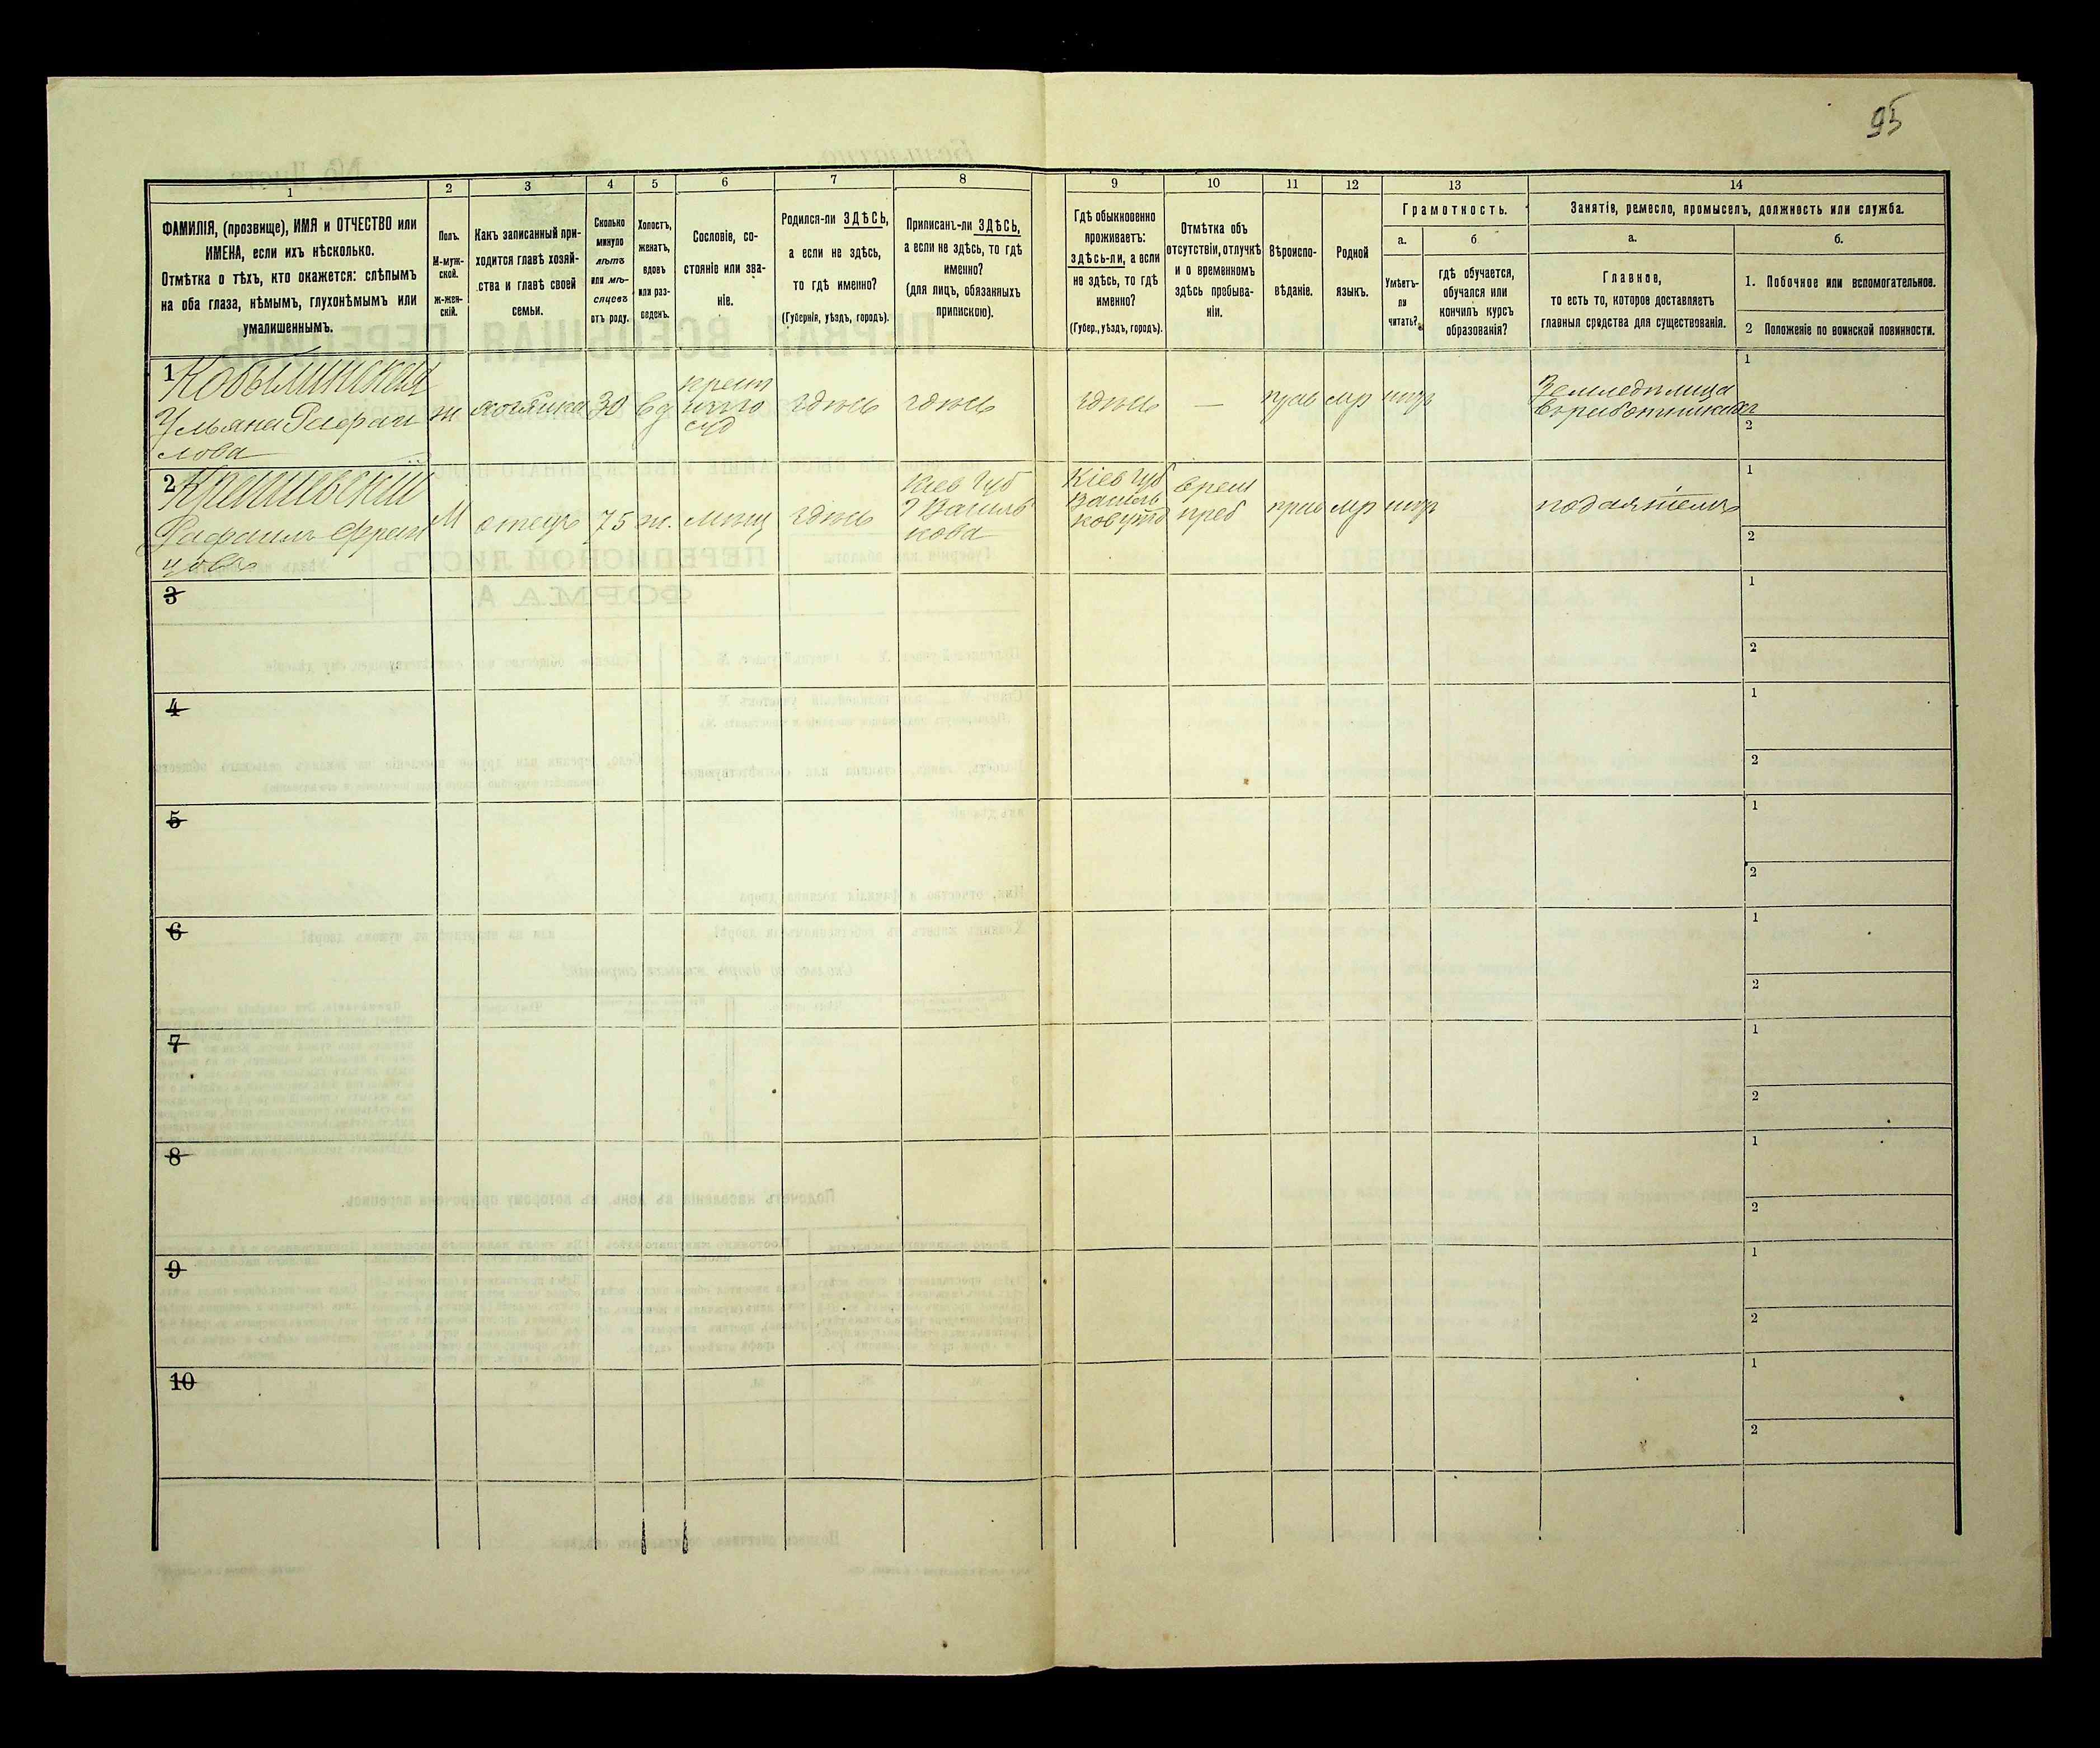 95
1
2
3
4
5
6
7
8
9
10
11
12
13
14
ФАМИЛІЯ, (прозвище), ИМЯ и ОТЧЕСТВО или
ИМЕНА, если ихъ нѣсколько.
Отмѣтка о тѣхъ, кто окажется: слѣпымъ
на оба глаза, нѣмымъ, глухонѣмымъ или
умалишеннымъ.
Полъ.
М-муж-
ской.
ж-жен-
скій.
Какъ записанный при-
ходится главѣ хозяй-
ства и главѣ своей
семьи.
Сколько
минуло
лѣтъ
или мѣ-
сяцевъ
отъ роду.
Холостъ,
женатъ,
вдовъ
или раз-
веденъ.
Сословіе, со-
стояніе или зва-
ніе.
Родился-ли ЗДѢСЬ,
а если не здѣсь,
то гдѣ именно?
(Губернія, уѣздъ, городъ).
Приписанъ-ли ЗДѢСЬ,
а если не здѣсь, то гдѣ
именно?
(для лицъ, обязанныхъ
припискою).
Гдѣ обыкновенно
проживаетъ:
здѣсь-ли, а если
не здѣсь, то гдѣ
именно?
(Губер., уѣздъ, городъ).
Отмѣтка объ
отсутствіи, отлучкѣ
и о временномъ
здѣсь пребыва-
ніи.
Вѣроиспо-
вѣданіе.
Родной
языкъ.
Грамотность.
а.
Умѣетъ-
ли
читать?
б
гдѣ обучается,
обучался или
кончилъ курсъ
образованія?
Занятія, ремесло, промыселъ, должность или служба.
а.
Главное,
то есть то, которое доставляетъ
главныя средства для существованія.
б.
1. Побочное или вспомогательное.
2 Положеніе по воинской повинности.
1 Кобылинская
Ульяна Рафаи
лова
ж
хозяйка
30
вд
крест
суд
здѣсь
здѣсь
здѣсь
—
прав
мр
Земледѣлица
1
2
2
Рафаилъ
М
отецъ
75
ж.
мѣщ
здѣсь
Кіев губ
г Василь
кова
Кіев губ
Василь
ков
врем
преб
прав
мр
подаяніемъ
1
2
3
1
2
4
1
2
5
1
2
6
1
2
7
1
2
8
1
2
9
1
2
10
1
2